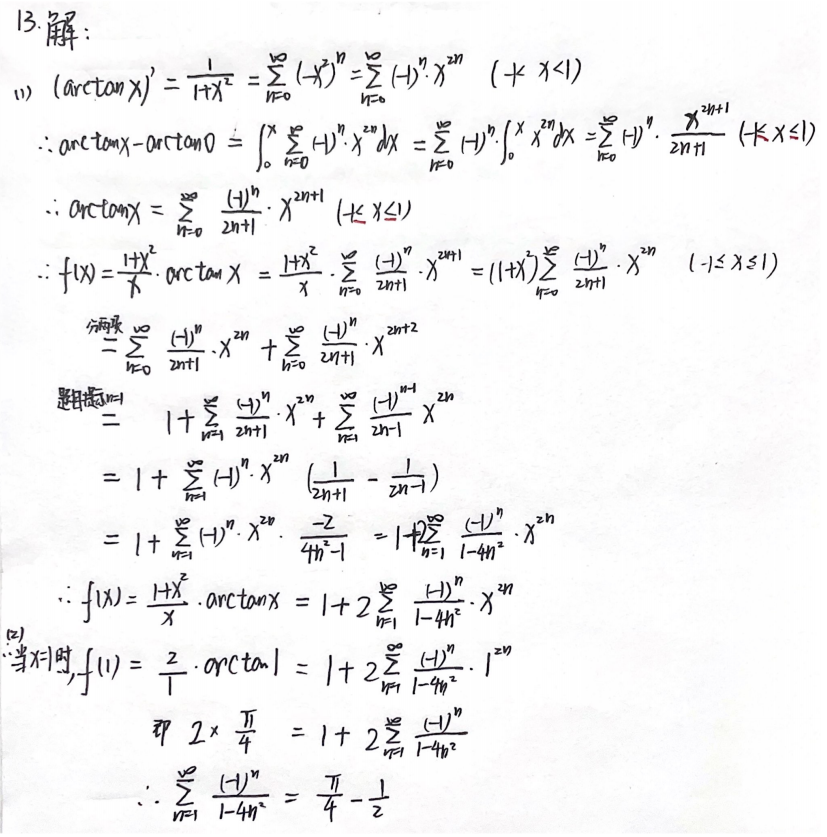 13.解:
(1) (arctanx)' = \frac{1}{1+x^2} = \sum_{n=0}^{\infty} (-x^2)^n = \sum_{n=0}^{\infty} (-1)^n \cdot x^{2n} (-1< x<1)
∴ arctanx-arctan0 = \int_0^x \sum_{n=0}^{\infty} (-1)^n \cdot x^{2n} dx = \sum_{n=0}^{\infty} (-1)^n \cdot \int_0^x x^{2n} dx = \sum_{n=0}^{\infty} (-1)^n \cdot \frac{x^{2n+1}}{2n+1} (-1≤ x≤1)
∴ arctanx = \sum_{n=0}^{\infty} \frac{(-1)^n}{2n+1} \cdot x^{2n+1} (-1≤ x≤1)
∴ f(x) = \frac{1+x^2}{x} \cdot arctanx = \frac{1+x^2}{x} \cdot \sum_{n=0}^{\infty} \frac{(-1)^n}{2n+1} \cdot x^{2n+1} = (1+x^2) \sum_{n=0}^{\infty} \frac{(-1)^n}{2n+1} \cdot x^{2n} (-1≤ x≤1)
分两项 = \sum_{n=0}^{\infty} \frac{(-1)^n}{2n+1} \cdot x^{2n} + \sum_{n=0}^{\infty} \frac{(-1)^n}{2n+1} \cdot x^{2n+2}
题目提示n=1 = 1 + \sum_{n=1}^{\infty} \frac{(-1)^n}{2n+1} \cdot x^{2n} + \sum_{n=1}^{\infty} \frac{(-1)^{n-1}}{2n-1} x^{2n}
= 1 + \sum_{n=1}^{\infty} (-1)^n \cdot x^{2n} (\frac{1}{2n+1} - \frac{1}{2n-1})
= 1 + \sum_{n=1}^{\infty} (-1)^n \cdot x^{2n} \cdot \frac{-2}{4n^2-1} = 1+2\sum_{n=1}^{\infty} \frac{(-1)^n}{1-4n^2} \cdot x^{2n}
∴ f(x) = \frac{1+x^2}{x} \cdot arctanx = 1 + 2\sum_{n=1}^{\infty} \frac{(-1)^n}{1-4n^2} \cdot x^{2n}
(2) ∴当x=1时, f(1) = \frac{2}{1} \cdot arctan1 = 1 + 2\sum_{n=1}^{\infty} \frac{(-1)^n}{1-4n^2} \cdot 1^{2n}
即 2× \frac{π}{4} = 1 + 2\sum_{n=1}^{\infty} \frac{(-1)^n}{1-4n^2}
∴ \sum_{n=1}^{\infty} \frac{(-1)^n}{1-4n^2} = \frac{π}{4} - \frac{1}{2}